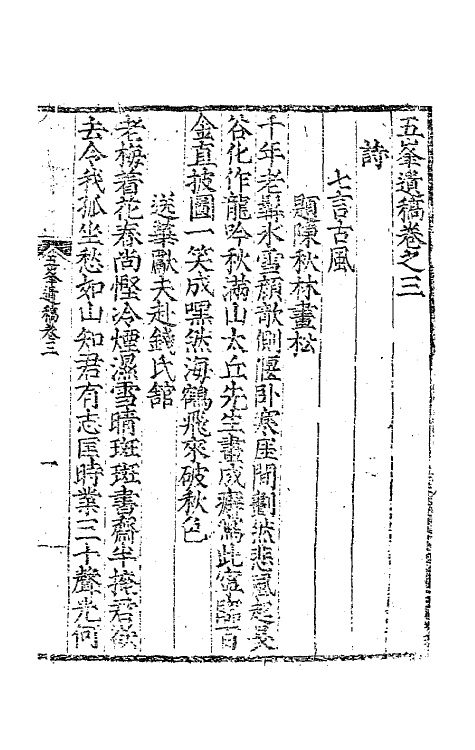 五峯遺稿卷之三
詩
七言古風
題陳秋林畫松
千年老榦氷雪顏欹側偃卧寒崖間劃然悲風起長
谷化作龍吟秋滿山太丘先生畫成癖寫此空臨百
金直披圖一笑成嘿然海鶴飛來破秋色
送華獻夫赴錢氏舘
老梅着花春尚慳冷煙濕雪晴斑斑書齋半掩君欲
去令我孤坐愁如山知君有志匡時業三十聲光何
五峯遺稿卷三
一